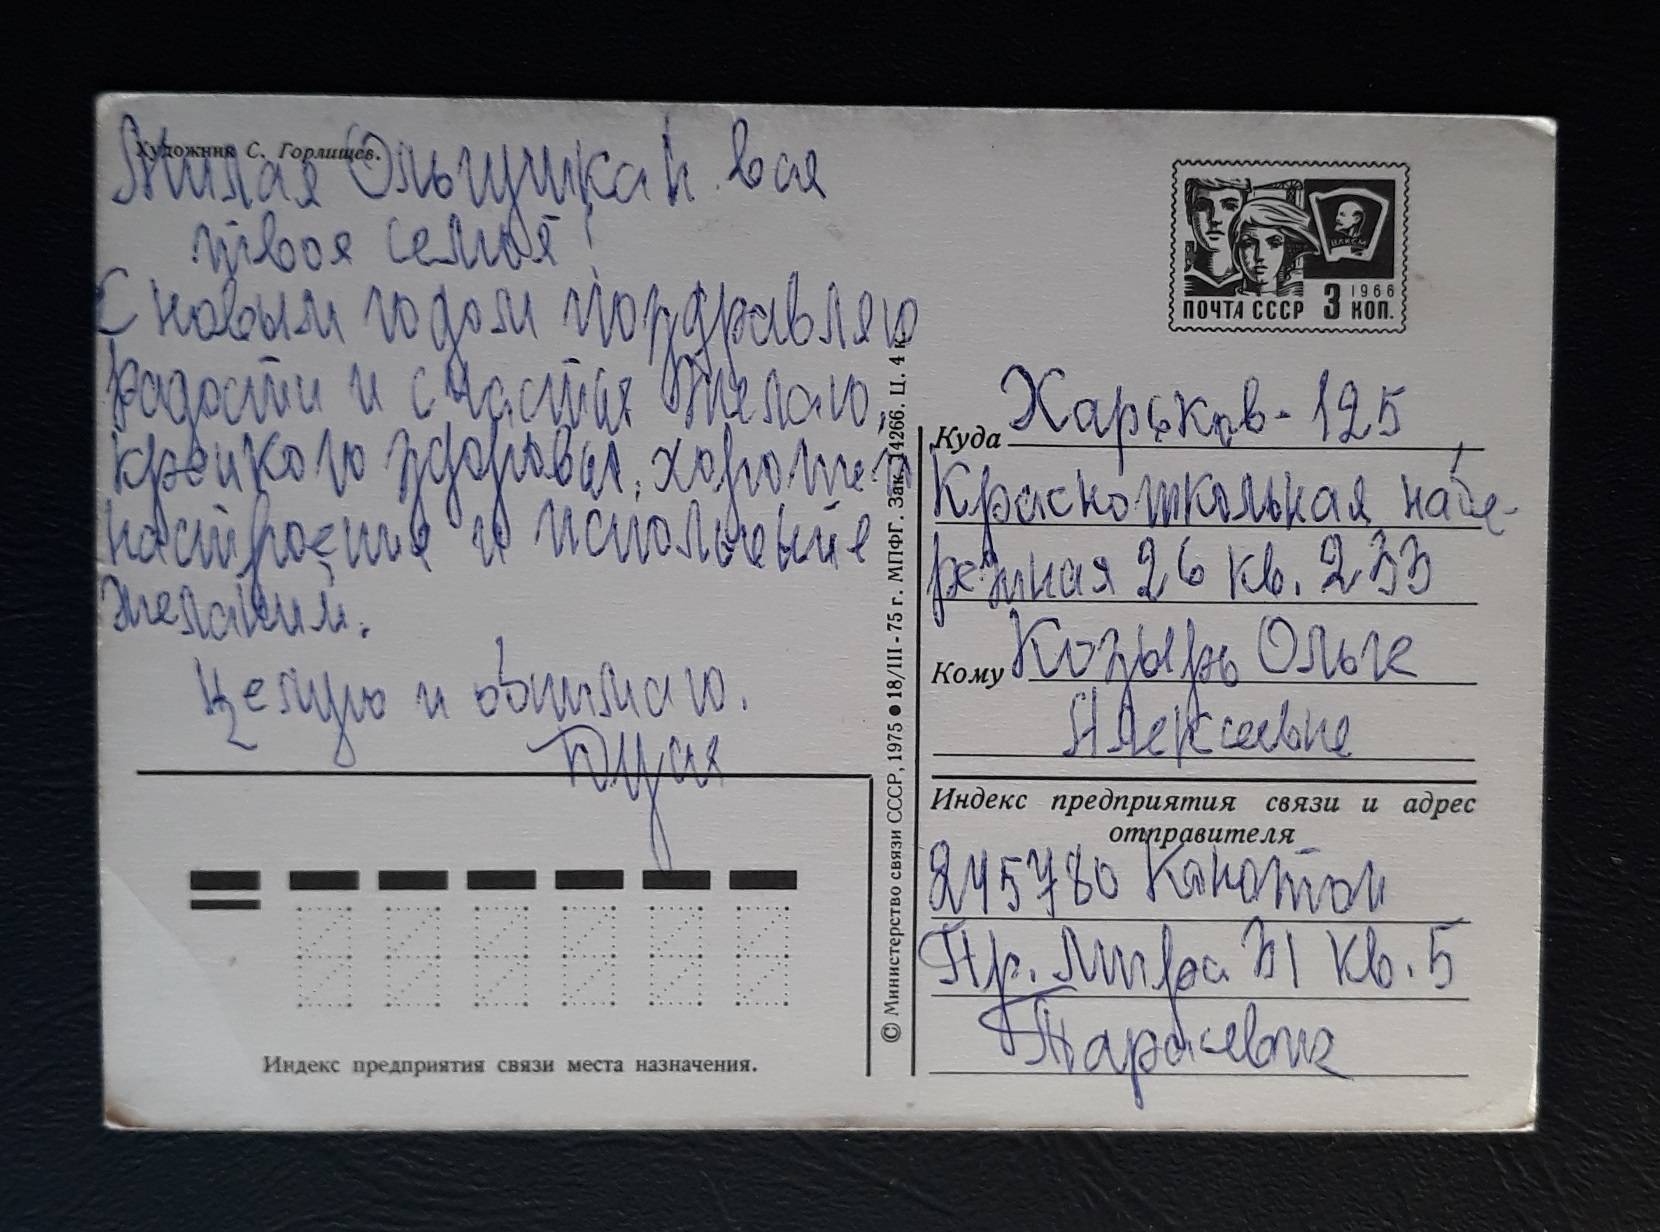 Художник С. Горлищев.
Милая Ольгушка и вся
твоя семья!
С новым годом поздравляю
радости и счастья желаю,
крепкого здоровья, хорошего
настроение и исполнение
желаний.
Целую и обнимаю.
ПОЧТА СССР 3 КОП.
1966
ВЛКСМ
Куда Харьков-125
Красношкольная набе-
режная 26 кв. 233
Кому Козырь Ольге
Алексеевне
Индекс предприятия связи и адрес
отправителя
245780 Конотоп
Пр. Мира 31 кв. 5
Индекс предприятия связи места назначения.
© Министерство связи СССР, 1975 ● 18/III - 75 г. МПФГ. Зак. 14266. Ц. 4 к.